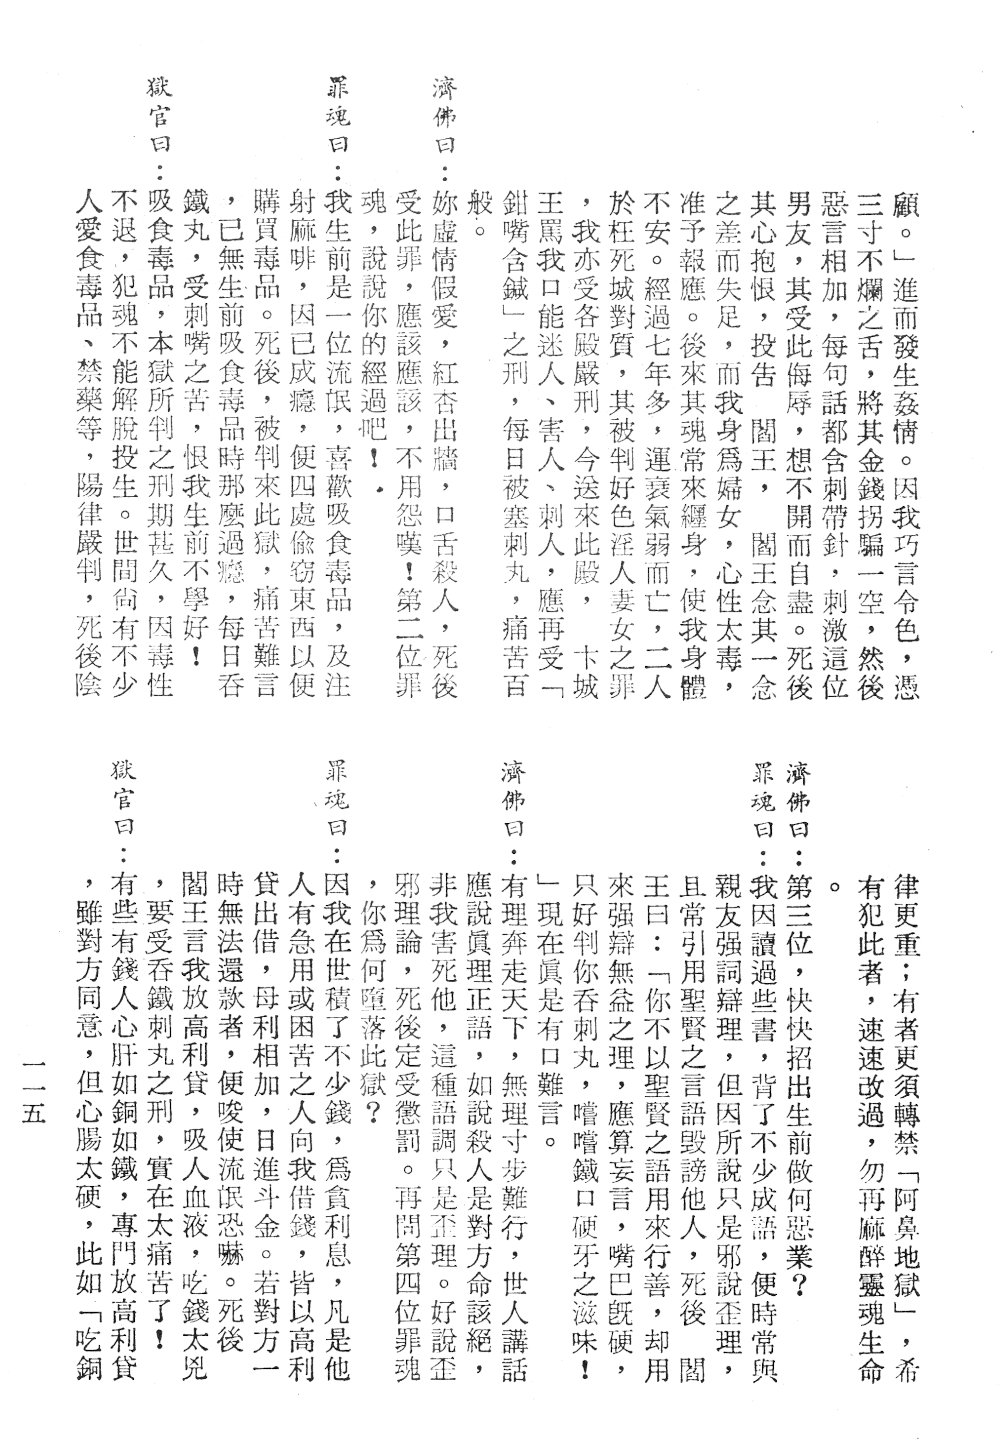 顧。」進而發生姦情。因我巧言令色，憑
三寸不爛之舌，將其金錢拐騙一空，然後
惡言相加，每句話都含刺帶針，刺激這位
男友，其受此侮辱，想不開而自盡。死後
其心抱恨，投告　閻王，　閻王念其一念
之差而失足，而我身爲婦女，心性太毒，
准予報應。後來其魂常來纏身，使我身體
不安。經過七年多，運衰氣弱而亡，二人
於枉死城對質，其被判好色淫人妻女之罪
，我亦受各殿嚴刑，今送來此殿，　卞城
王罵我口能迷人、害人、刺人，應再受「
鉗嘴含鍼」之刑，每日被塞刺丸，痛苦百
般。
濟佛曰：妳虛情假愛，紅杏出牆，口舌殺人，死後
受此罪，應該應該，不用怨嘆！第二位罪
魂，說說你的經過吧！
罪魂曰：我生前是一位流氓，喜歡吸食毒品，及注
射麻啡，因已成癮，便四處偸窃東西以便
購買毒品。死後，被判來此獄，痛苦難言
，已無生前吸食毒品時那麼過癮，每日吞
鐵丸，受刺嘴之苦，恨我生前不學好！
獄官曰：吸食毒品，本獄所判之刑期甚久，因毒性
不退，犯魂不能解脫投生。世間尙有不少
人愛食毒品、禁藥等，陽律嚴判，死後陰
律更重；有者更須轉禁「阿鼻地獄」，希
有犯此者，速速改過，勿再麻醉靈魂生命
。
濟佛曰：第三位，快快招出生前做何惡業？
罪魂曰：我因讀過些書，背了不少成語，便時常與
親友强詞辯理，但因所說只是邪說歪理，
且常引用聖賢之言語毁謗他人，死後　閻
王曰：「你不以聖賢之語用來行善，却用
來强辯無益之理，應算妄言，嘴巴旣硬，
只好判你吞刺丸，嚐嚐鐵口硬牙之滋味！
」現在眞是有口難言。
濟佛曰：有理奔走天下，無理寸步難行，世人講話
應說眞理正語，如說殺人是對方命該絕，
非我害死他，這種語調只是歪理。好說歪
邪理論，死後定受懲罰。再問第四位罪魂
，你爲何墮落此獄？
罪魂曰：因我在世積了不少錢，爲貪利息，凡是他
人有急用或困苦之人向我借錢，皆以高利
貸出借，母利相加，日進斗金。若對方一
時無法還款者，便唆使流氓恐嚇。死後
閻王言我放高利貸，吸人血液，吃錢太兇
，要受吞鐵刺丸之刑，實在太痛苦了！
獄官曰：有些有錢人心肝如銅如鐵，專門放高利貸
，雖對方同意，但心腸太硬，此如「吃銅
一一五